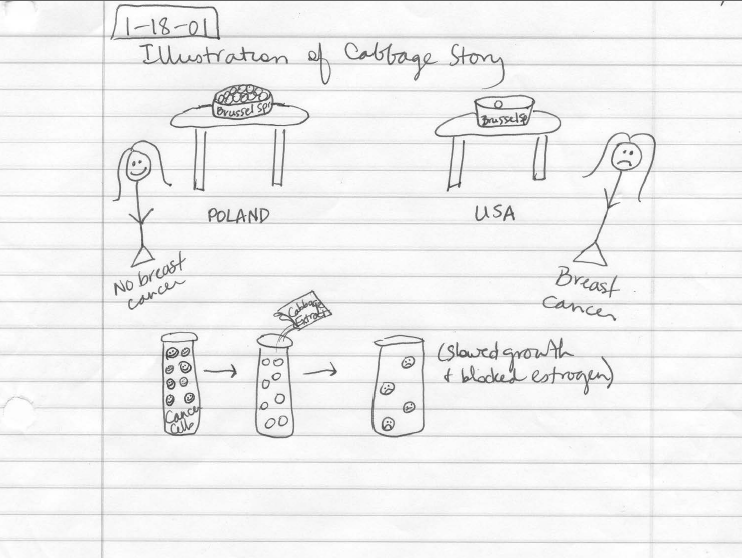 1-18-01
Illustration of Cabbage Story
Brussel Sp
Brussel Sp
POLAND
USA
No breast
cancer
Breast
Cancer
Cabbage
Extract
Cancer
Cells
(slowed growth
+ blocked estrogen)